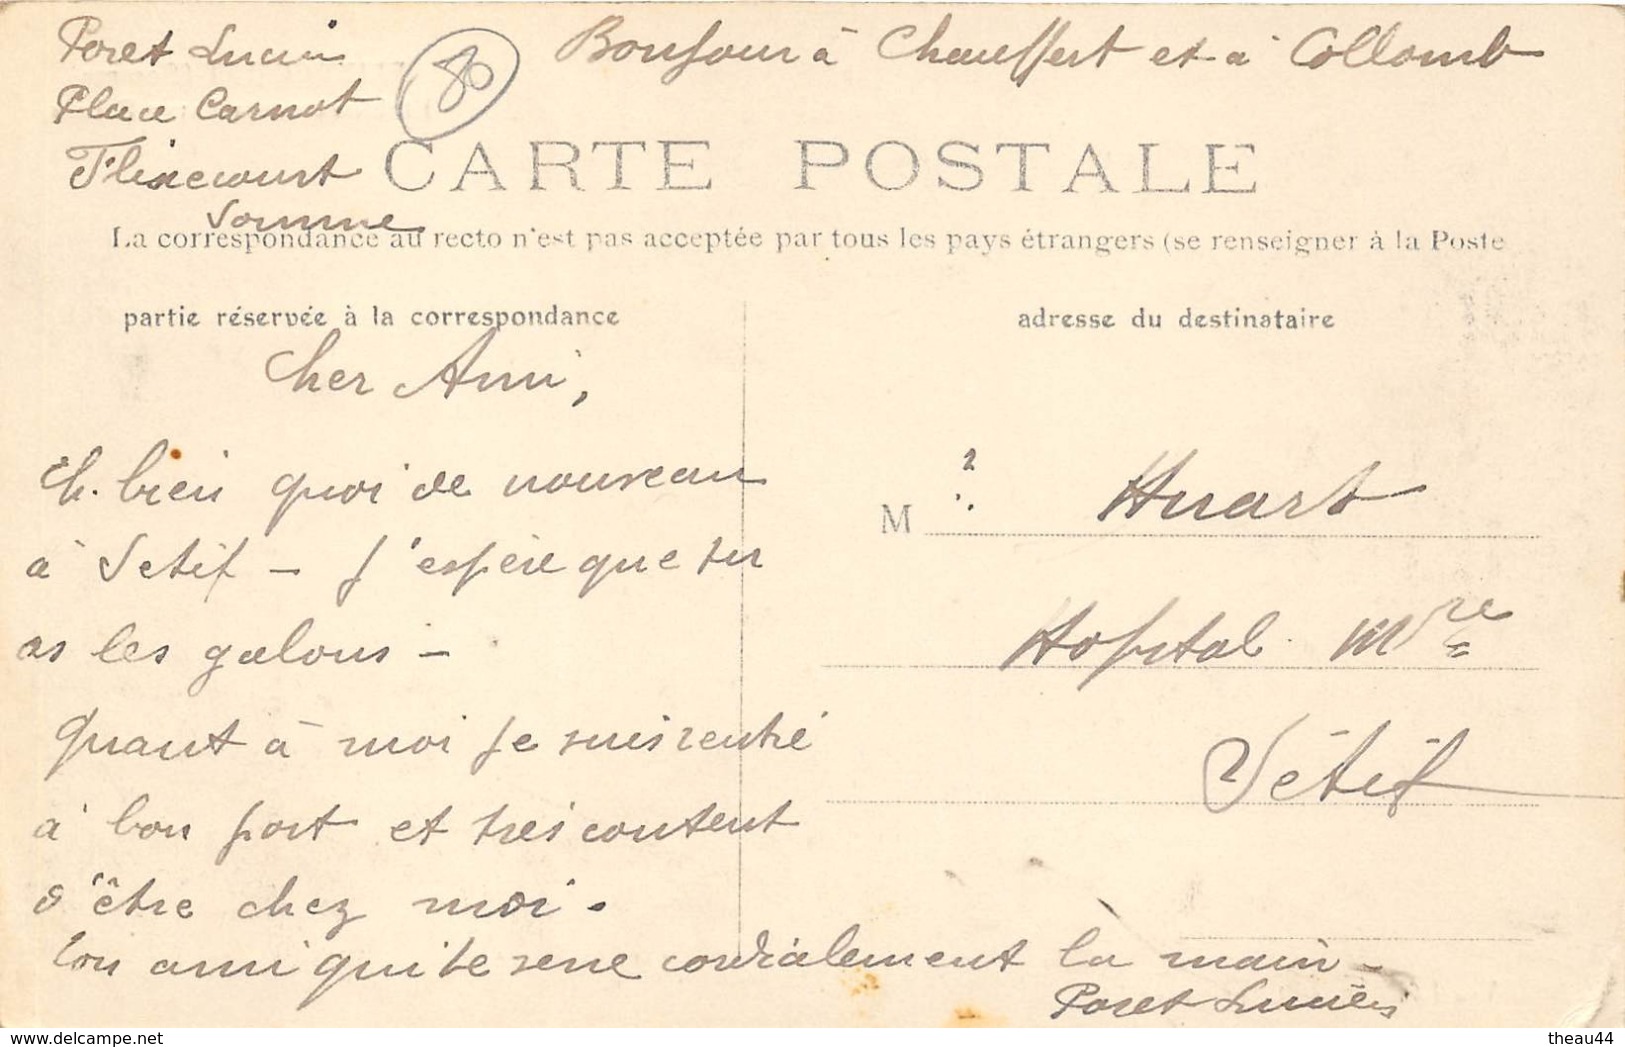 Poret Lucien
Place Carnot
Flixecourt
Somme
80
Bonjour à Chauffert et à Collomb
CARTE POSTALE
La correspondance au recto n'est pas acceptée par tous les pays étrangers (se renseigner à la Poste
partie réservée à la correspondance
adresse du destinataire
Cher Ami,
Eh bien quoi de nouveau
à Sétif - J'espère que tu
as les galons -
Quant à moi je suis rentré
à bon port et très content
d'être chez moi.
Ton ami qui te serre cordialement la main -
Poret Lucien
M ? Huart
Hopital Mre
Sétif
theau44